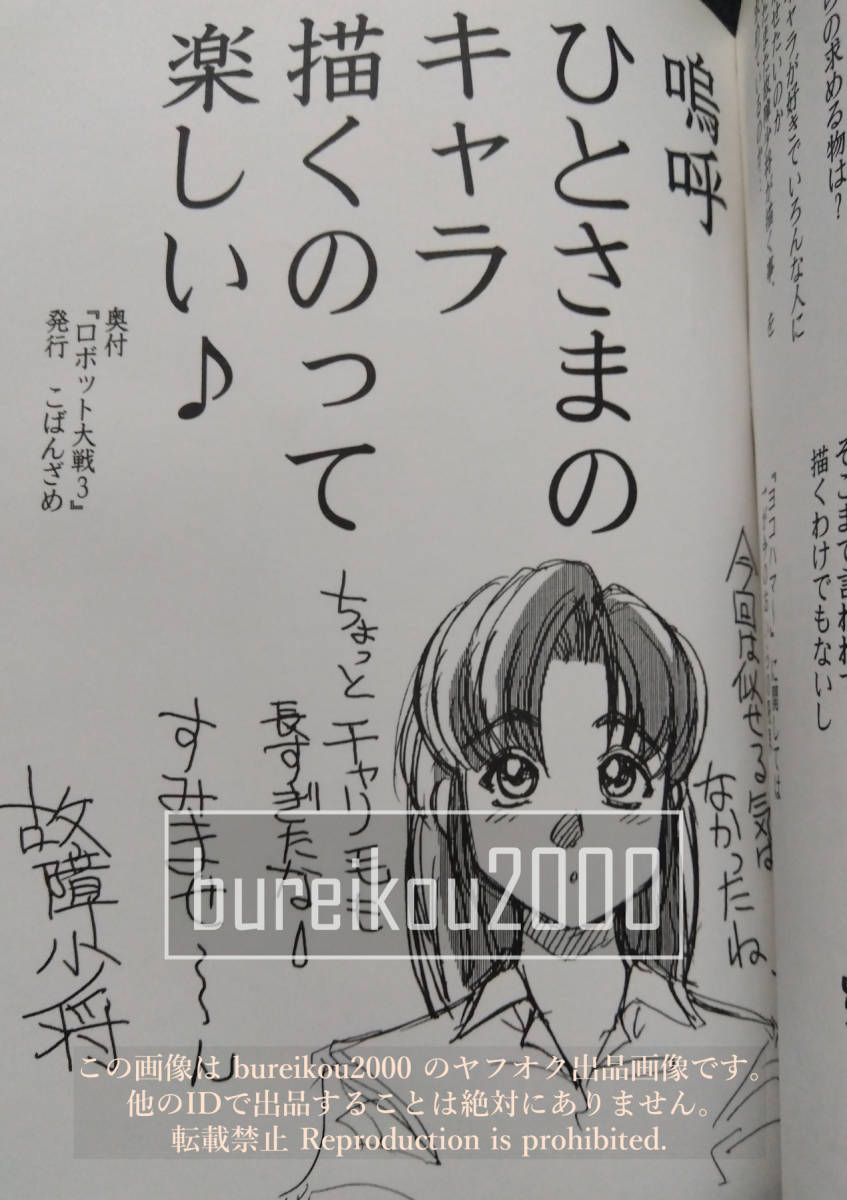 らの求める物は？
キャラが好きでいろんな人に
そこまで言われて
描くわけでもないし
嗚呼
ひとさまの
キャラ
描くのって
楽しい♪
奥付
『ロボット大戦3』
発行　こばんざめ
今回は似せる気は
なかったね、
ちょっと
長すぎたな！
すみませ〜ん
故障少将
bureikou2000
この画像は bureikou2000 のヤフオク出品画像です。
他のIDで出品することは絶対にありません。
転載禁止 Reproduction is prohibited.